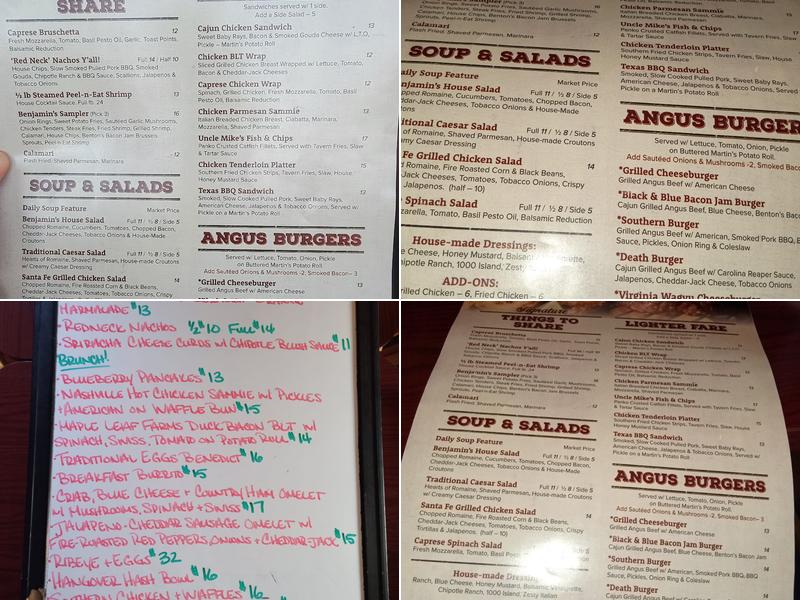 SHARE
Caprese Bruschetta 12
Fresh Mozzarella, Tomato, Basil Pesto Oil, Garlic, Toast Points,
Balsamic Reduction
'Red Neck' Nachos Y'all! Full 14 / Half 10
House Chips, Slow Smoked Pulled Pork BBQ, Smoked
Gouda, Chipotle Ranch & BBQ Sauce, Scallions, Jalapenos &
Tobacco Onions
½ lb Steamed Peel-n-Eat Shrimp 13
House Cocktail Sauce. Full lb. 24
Benjamin's Sampler (Pick 3) 16
Onion Rings, Sweet Potato Fries, Sautéed Garlic Mushrooms,
Chicken Tenders, Steak Fries, Fried Shrimp, Grilled Shrimp,
Calamari, House Chips, Benton's Bacon Jam Brussels
Sprouts, Peel-n-Eat Shrimp
Calamari 12
Flash Fried, Shaved Parmesan, Marinara
SOUP & SALADS
Daily Soup Feature Market Price
Benjamin's House Salad Full 11 / ½ 8 / Side 5
Chopped Romaine, Cucumbers, Tomatoes, Chopped Bacon,
Cheddar-Jack Cheeses, Tobacco Onions & House-Made
Croutons
Traditional Caesar Salad Full 11 / ½ 8 / Side 5
Hearts of Romaine, Shaved Parmesan, House-made Croutons
w/ Creamy Caesar Dressing
Santa Fe Grilled Chicken Salad 14
Chopped Romaine, Fire Roasted Corn & Black Beans,
Cheddar-Jack Cheeses, Tomatoes, Tobacco Onions, Crispy
Sandwiches served w/ 1 side.
Add a Side Salad – 5
Cajun Chicken Sandwich 13
Sweet Baby Rays, Bacon & Smoked Gouda Cheese w/ L,T,O,
Pickle – Martin's Potato Roll
Chicken BLT Wrap 12
Sliced Grilled Chicken Breast Wrapped w/ Lettuce, Tomato,
Bacon & Cheddar-Jack Cheeses
Caprese Chicken Wrap 12
Spinach, Grilled Chicken, Fresh Mozzarella, Tomato, Basil
Pesto Oil, Balsamic Reduction
Chicken Parmesan Sammie 13
Italian Breaded Chicken Breast, Ciabatta, Marinara,
Mozzarella, Shaved Parmesan
Uncle Mike's Fish & Chips 17
Panko Crusted Catfish Fillets, Served with Tavern Fries, Slaw
& Tartar Sauce
Chicken Tenderloin Platter 15
Southern Fried Chicken Strips, Tavern Fries, Slaw, House
Honey Mustard Sauce
Texas BBQ Sandwich 13
Smoked, Slow Cooked Pulled Pork, Sweet Baby Rays,
American Cheese, Jalapenos & Tobacco Onions, Served w/
Pickle on a Martin's Potato Roll
ANGUS BURGERS
Served w/ Lettuce, Tomato, Onion, Pickle
on Buttered Martin's Potato Roll.
Add Sautéed Onions & Mushrooms -2, Smoked Bacon– 3
*Grilled Cheeseburger 13
Grilled Angus Beef w/ American Cheese
Calamari
Flash Fried, Shaved Parmesan, Marinara 12
SOUP & SALADS
aily Soup Feature Market Price
njamin's House Salad Full 11 / ½ 8 / Side 5
pped Romaine, Cucumbers, Tomatoes, Chopped Bacon,
ddar-Jack Cheeses, Tobacco Onions & House-Made
itional Caesar Salad Full 11 / ½ 8 / Side 5
of Romaine, Shaved Parmesan, House-made Croutons
my Caesar Dressing
Fe Grilled Chicken Salad 14
Romaine, Fire Roasted Corn & Black Beans,
ck Cheeses, Tomatoes, Tobacco Onions, Crispy
Jalapenos. (half – 10)
Spinach Salad Full 11 / ½ 8 / Side 5
zarella, Tomato, Basil Pesto Oil, Balsamic Reduction
House-made Dressings:
e Cheese, Honey Mustard, Balsamic Vinaigrette,
hipotle Ranch, 1000 Island, Zesty
ADD-ONS:
rilled Chicken – 6, Fried Chicken – 6
Mozzarella, Shaved Parmesan
Uncle Mike's Fish & Chips
Panko Crusted Catfish Fillets, Served with Tavern Fries, Slaw
& Tartar Sauce
Chicken Tenderloin Platter
Southern Fried Chicken Strips, Tavern Fries, Slaw, House
Honey Mustard Sauce
Texas BBQ Sandwich
Smoked, Slow Cooked Pulled Pork, Sweet Baby Rays,
American Cheese, Jalapenos & Tobacco Onions, Served
Pickle on a Martin's Potato Roll
ANGUS BURGER
Served w/ Lettuce, Tomato, Onion, Pickle
on Buttered Martin's Potato Roll.
Add Sautéed Onions & Mushrooms -2, Smoked Baco
*Grilled Cheeseburger
Grilled Angus Beef w/ American Cheese
*Black & Blue Bacon Jam Burger
Cajun Grilled Angus Beef, Blue Cheese, Benton's Baco
*Southern Burger
Grilled Angus Beef w/ American, Smoked Pork BBQ,
Sauce, Pickles, Onion Ring & Coleslaw
*Death Burger
Cajun Grilled Angus Beef w/ Carolina Reaper Sauce,
Jalapenos, Cheddar-Jack Cheese, Tobacco Onions
*Virginia Wagyu Cheeseburger
MARMALADE $13
· REDNECK NACHOS ½ $10 FULL $14
· SRIRACHA CHEESE CURDS W/ CHIPOTLE BLUSH SAUCE $11
BRUNCH!
· BLUEBERRY PANCAKES $13
· NASHVILLE HOT CHICKEN SAMMIE W/ PICKLES
+ AMERICAN ON WAFFLE BUN $15
· MAPLE LEAF FARMS DUCK BACON BLT W/
SPINACH, SWISS, TOMATO ON POTATO ROLL $14
· TRADITIONAL EGGS BENEDICT $16
· BREAKFAST BURRITO $15
· CRAB, BLUE CHEESE + COUNTRY HAM OMELET
W/ MUSHROOMS, SPINACH + SWISS $17
· JALAPENO-CHEDDAR SAUSAGE OMELET W/
FIRE-ROASTED RED PEPPERS, ONIONS + CHEDDAR-JACK $15
· RIBEYE + EGGS $32
· HANGOVER HASH BOWL $16
· SOUTHERN CHICKEN + WAFFLES $16
Signature
THINGS TO
SHARE
Caprese Bruschetta
'Red Neck' Nachos Y'all!
½ lb Steamed Peel-n-Eat Shrimp
Benjamin's Sampler (Pick 3)
Calamari
Flash Fried, Shaved Parmesan, Marinara 12
SOUP & SALADS
Daily Soup Feature Market Price
Benjamin's House Salad Full 11 / ½ 8 / Side 5
Chopped Romaine, Cucumbers, Tomatoes, Chopped Bacon,
Cheddar-Jack Cheeses, Tobacco Onions & House-Made
Croutons
Traditional Caesar Salad Full 11 / ½ 8 / Side 5
Hearts of Romaine, Shaved Parmesan, House-made Croutons
w/ Creamy Caesar Dressing
Santa Fe Grilled Chicken Salad 14
Chopped Romaine, Fire Roasted Corn & Black Beans,
Cheddar-Jack Cheeses, Tomatoes, Tobacco Onions, Crispy
Tortillas & Jalapenos. (half – 10)
Caprese Spinach Salad Full 11 / ½ 8 / Side 5
Fresh Mozzarella, Tomato, Basil Pesto
House-made Dressing
Ranch, Blue Cheese, Honey Mustard, Balsamic Vinaigrette,
Chipotle Ranch, 1000 Island, Zesty Italian
LIGHTER FARE
Cajun Chicken Sandwich
Chicken BLT Wrap
Caprese Chicken Wrap
Chicken Parmesan Sammie
Uncle Mike's Fish & Chips
Panko Crusted Catfish Fillets, Served with Tavern Fries, Slaw
& Tartar Sauce
Chicken Tenderloin Platter
Southern Fried Chicken Strips, Tavern Fries, Slaw, House
Honey Mustard Sauce
Texas BBQ Sandwich 13
Smoked, Slow Cooked Pulled Pork, Sweet Baby Rays,
American Cheese, Jalapenos & Tobacco Onions, Served w/
Pickle on a Martin's Potato Roll
ANGUS BURGERS
Served w/ Lettuce, Tomato, Onion, Pickle
on Buttered Martin's Potato Roll.
Add Sautéed Onions & Mushrooms -2, Smoked Bacon– 3
*Grilled Cheeseburger 13
Grilled Angus Beef w/ American Cheese
*Black & Blue Bacon Jam Burger 14
Cajun Grilled Angus Beef, Blue Cheese, Benton's Bacon Jam
*Southern Burger 14
Grilled Angus Beef w/ American, Smoked Pork BBQ, BBQ
Sauce, Pickles, Onion Ring & Coleslaw
*Death Burger 14